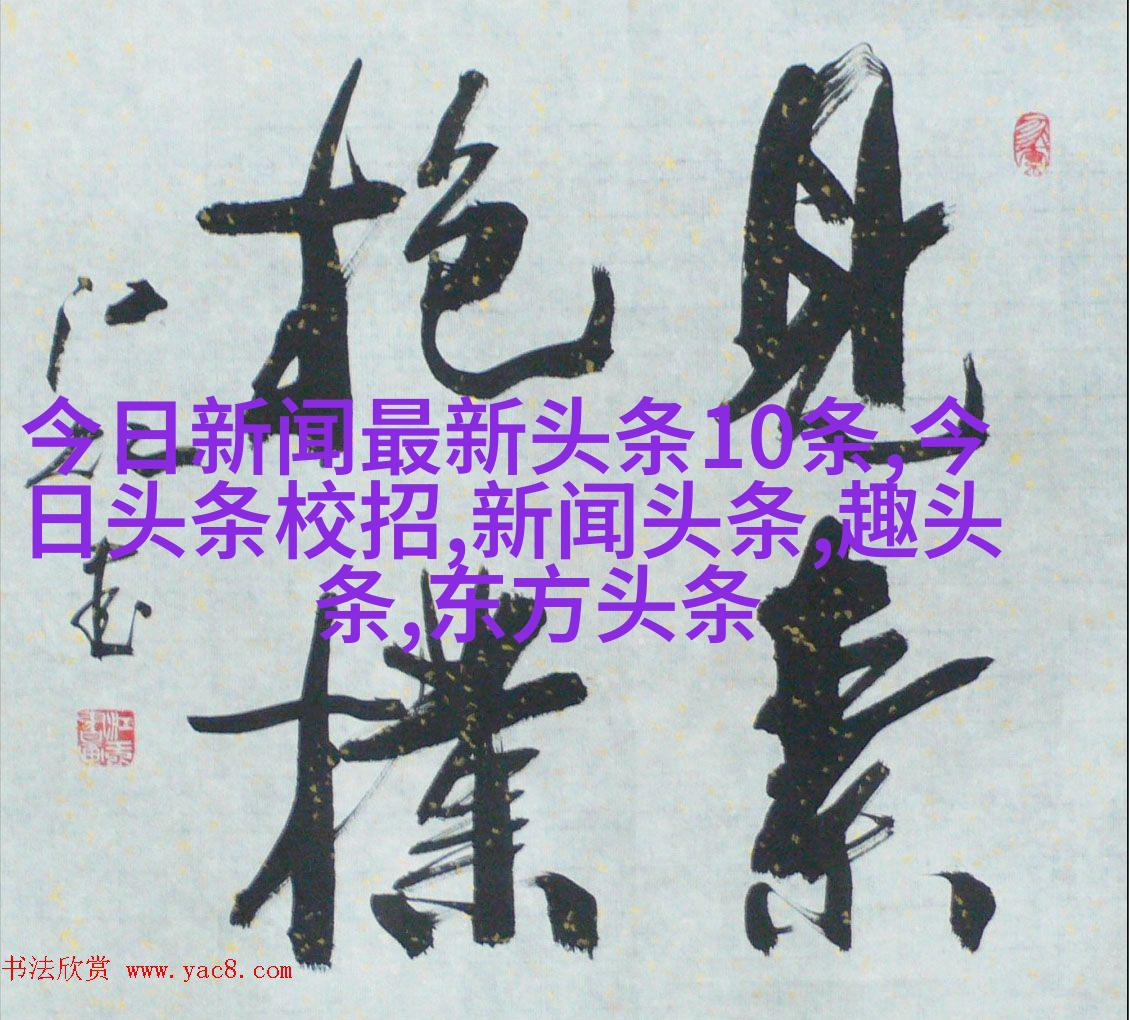 見素
抱樸
江
书
今日新闻最新头条10条,今
日头条校招,新闻头条,趣头
条,东方头条
书法欣赏 www.yac8.com